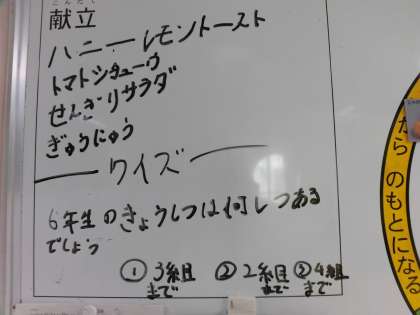 こんだて
献立
ハニーレモントースト
トマトシチュー
せんぎりサラダ
ぎゅうにゅう
クイズ
6年生のきょうしつは何しつある
でしょう
① 3組まで ② 2組まで ③ 4組まで
から のもとになる